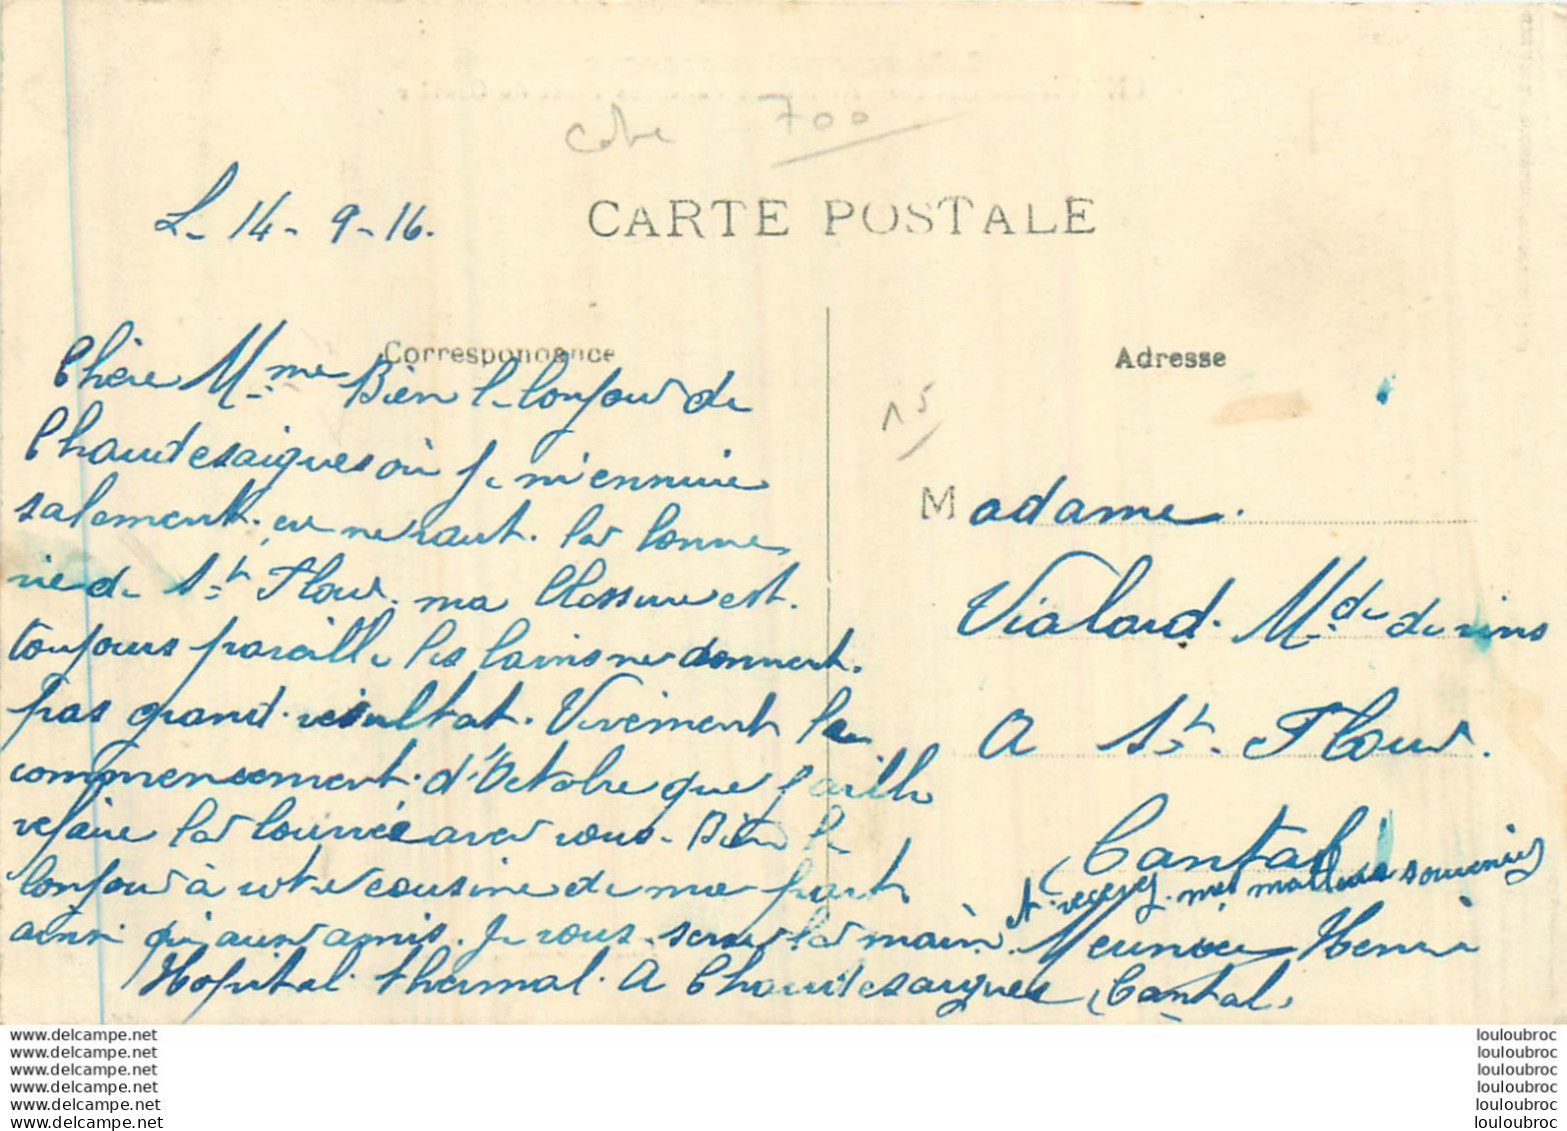 Cote 700
CARTE POSTALE
L- 14- 9-16.
Correspondance
Adresse
15
Chère Mme Bien l- Bonjour de
Chaudesaigues où je m'ennuie
salement. en ne vaut. la bonne
vie de St Flour. ma blessure est.
toujours pareille les bains ne donnent.
pas grand. résultat. Vivement le
commencement. d'Octobre que j'aille
refaire la bourrée avec vous. Bien le
bonjour à votre cousine de ma part
ainsi qu'aux amis. Je vous. serre la main.
Et. recevez. mes meilleurs souvenirs
Meunier Henri
Hopital. thermal. A Chaudesaigues Cantal.
Madame.
Vialard. Mde de vins
A St- Flour.
Cantal
www.delcampe.net
www.delcampe.net
www.delcampe.net
www.delcampe.net
www.delcampe.net
www.delcampe.net
louloubroc
louloubroc
louloubroc
louloubroc
louloubroc
louloubroc